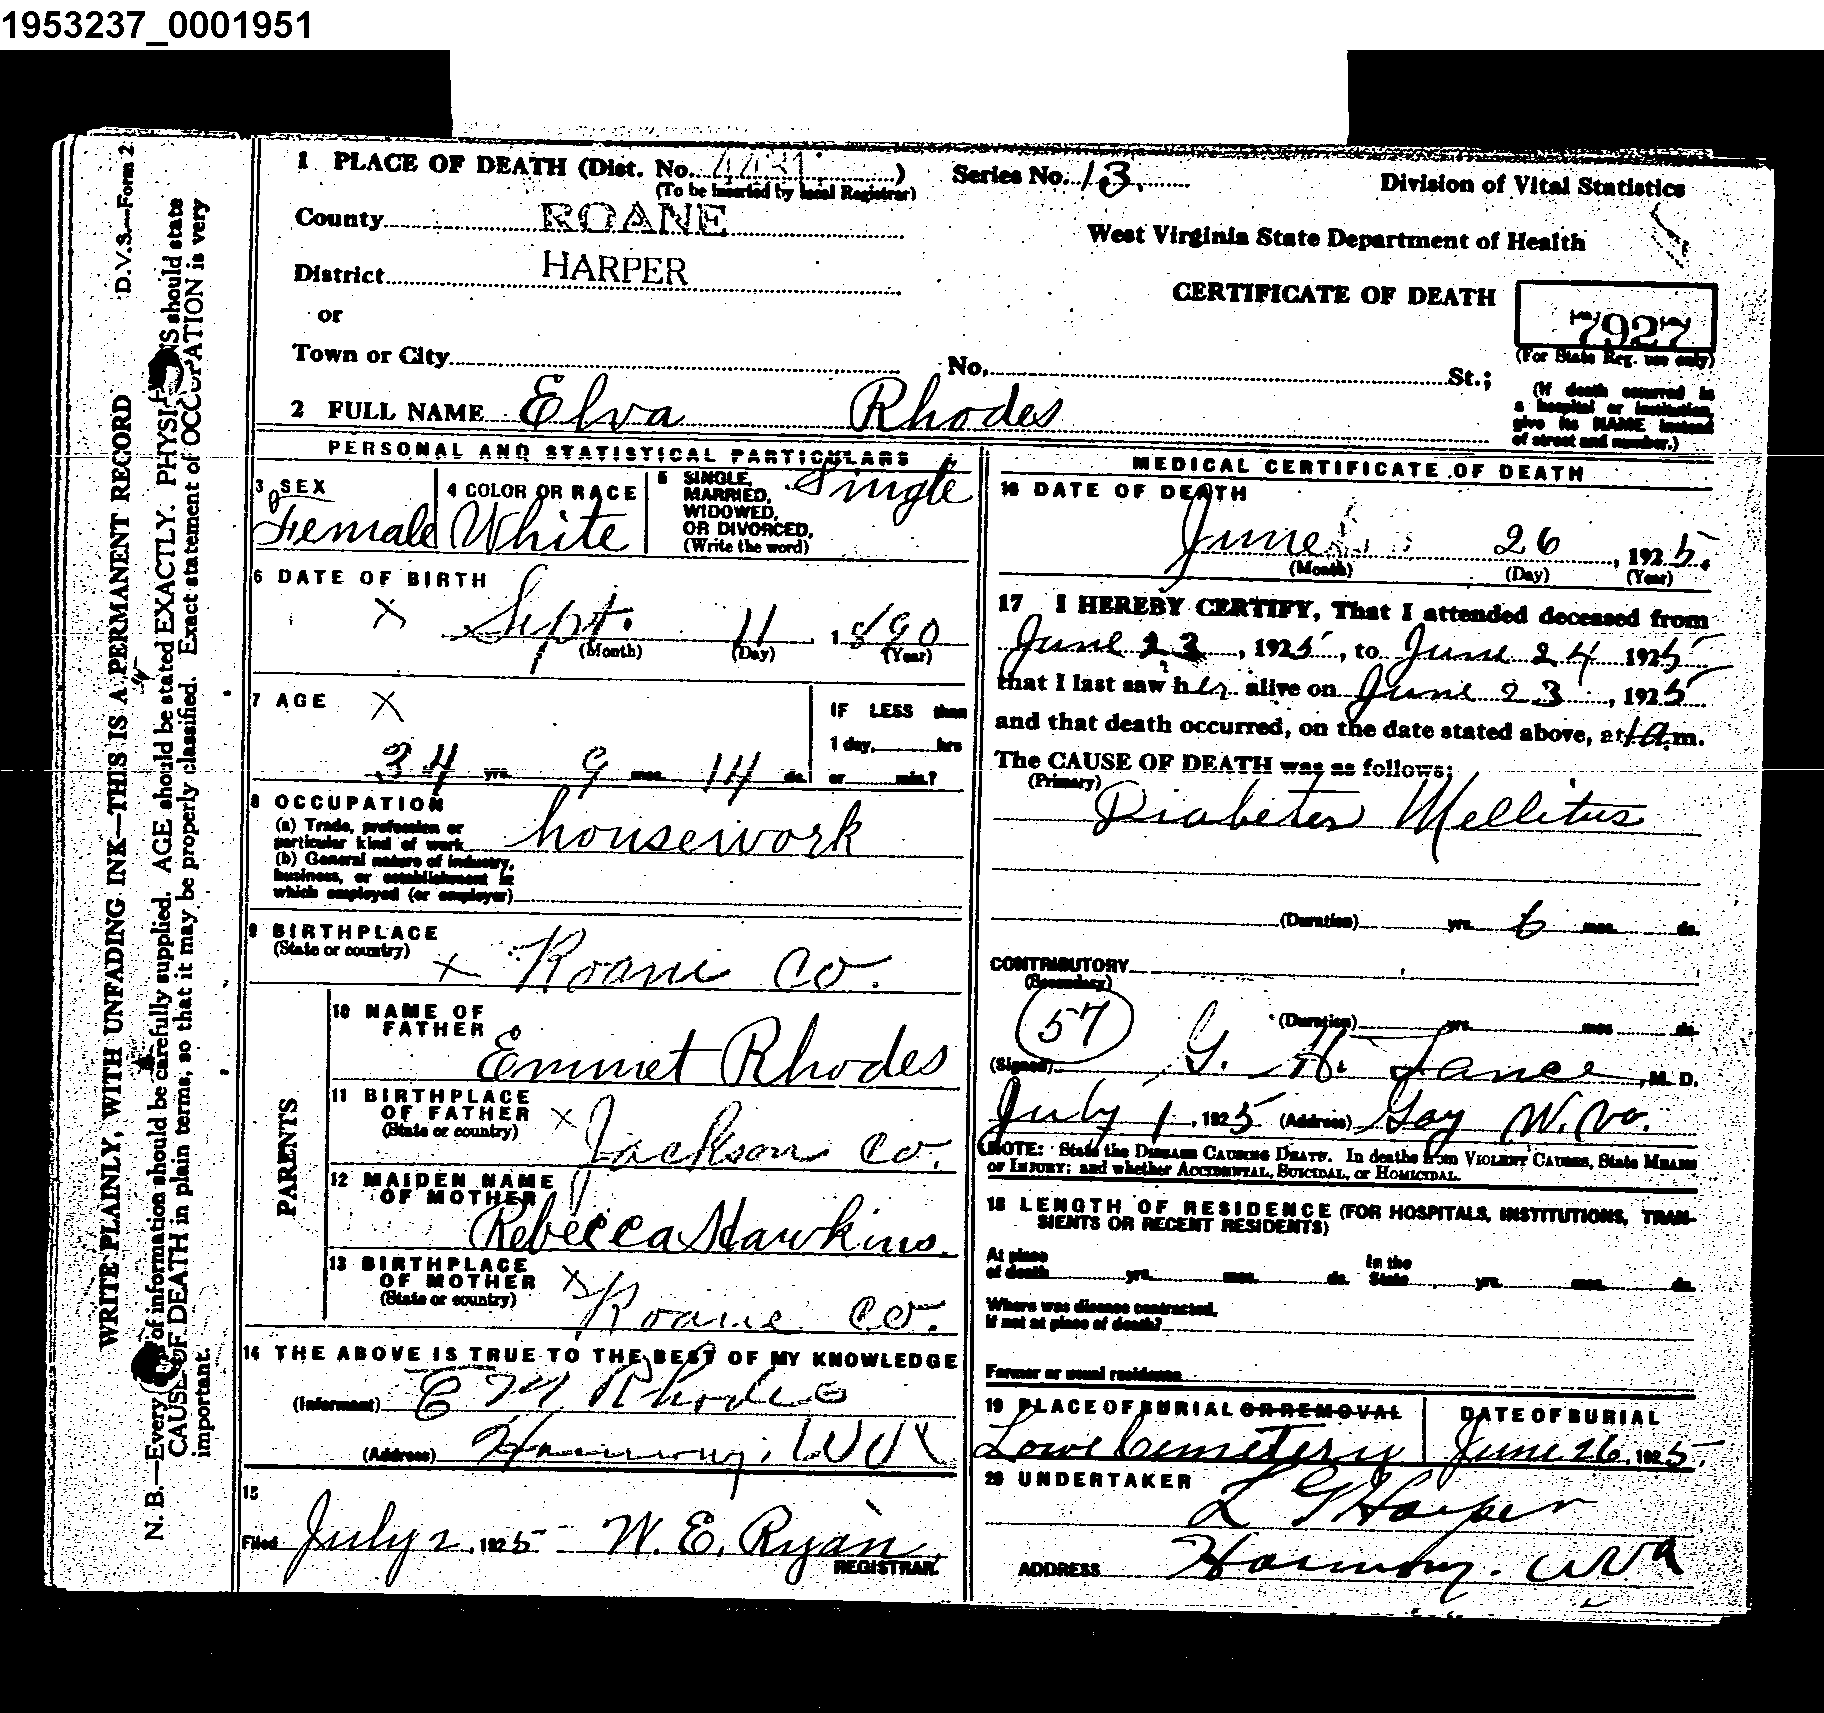 1953237_0001951
D.V.S.—Form 2
WRITE PLAINLY, WITH UNFADING INK—THIS IS A PERMANENT RECORD
N. B.—Every of information should be carefully supplied. AGE should be stated EXACTLY. PHYSI NS should state
CAUSE OF DEATH in plain terms, so that it may be properly classified. Exact statement of OCCUPATION is very
important.
1 PLACE OF DEATH (Dist. No. ) Series No. 13. Division of Vital Statistics
(To be inserted by local Registrar)
County ROANE
West Virginia State Department of Health
District HARPER
CERTIFICATE OF DEATH 7927
or
(For State Reg. use only)
Town or City No. St.;
(If death occurred in
a hospital or institution,
give its NAME instead
of street and number.)
2 FULL NAME Elva Rhodes
PERSONAL AND STATISTICAL PARTICULARS
3 SEX
Female
4 COLOR OR RACE
White
5 SINGLE,
MARRIED,
WIDOWED,
OR DIVORCED,
(Write the word)
Single
6 DATE OF BIRTH
X Sept. 11 1890
(Month) (Day) (Year)
7 AGE X
34 yrs. 9 mos. 14 ds.
IF LESS than
1 day, hrs
or min.?
8 OCCUPATION
(a) Trade, profession or
particular kind of work housework
(b) General nature of industry,
business, or establishment in
which employed (or employer)
9 BIRTHPLACE
(State or country) X Roane Co.
PARENTS
10 NAME OF
FATHER
Emmet Rhodes
11 BIRTHPLACE
OF FATHER
(State or country) X Jackson Co.
12 MAIDEN NAME
OF MOTHER
Rebecca Hawkins
13 BIRTHPLACE
OF MOTHER
(State or country) X Roane Co.
14 THE ABOVE IS TRUE TO THE BEST OF MY KNOWLEDGE
(Informant) E M Rhodes
(Address) Harmony, W Va
15
Filed July 2, 1925 W. E. Ryan
REGISTRAR.
MEDICAL CERTIFICATE OF DEATH
16 DATE OF DEATH
June 26, 1925.
(Month) (Day) (Year)
17 I HEREBY CERTIFY, That I attended deceased from
June 23, 1925, to June 24 1925
that I last saw her alive on June 23, 1925
and that death occurred, on the date stated above, at 1 a.m.
The CAUSE OF DEATH was as follows:
(Primary)
Diabetes Mellitus
(Duration) yrs. 6 mos. ds.
CONTRIBUTORY
(Secondary)
57
(Duration) yrs. mos. ds.
(Signed) G. K. Lance, M. D.
July 1, 1925 (Address) Gay W. Va.
NOTE: State the DISEASE CAUSING DEATH. In deaths from VIOLENT CAUSES, State MEANS
OF INJURY; and whether ACCIDENTAL, SUICIDAL, or HOMICIDAL.
18 LENGTH OF RESIDENCE (FOR HOSPITALS, INSTITUTIONS, TRAN-
SIENTS OR RECENT RESIDENTS)
At place
of death yrs. mos. ds.
In the
State yrs. mos. ds.
Where was disease contracted,
if not at place of death?
Former or usual residence
19 PLACE OF BURIAL OR REMOVAL
Lowe Cemetery
DATE OF BURIAL
June 26, 1925
20 UNDERTAKER
L G Harper
ADDRESS Harmony. W Va